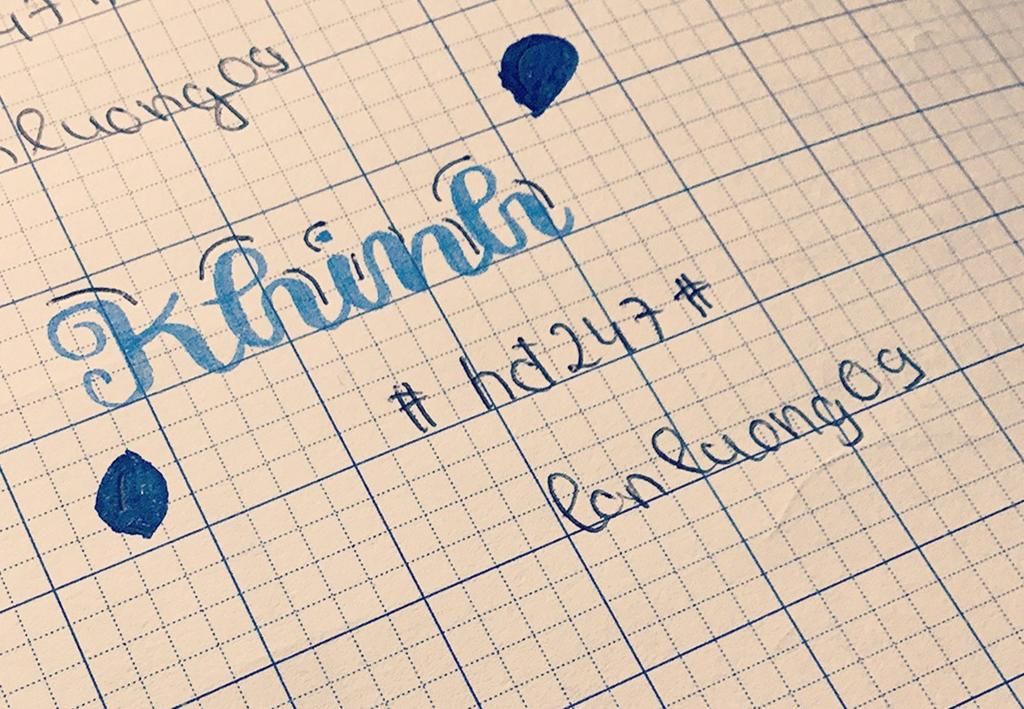 47#
nluong09
Khinh
# hd247 #
lanluong09